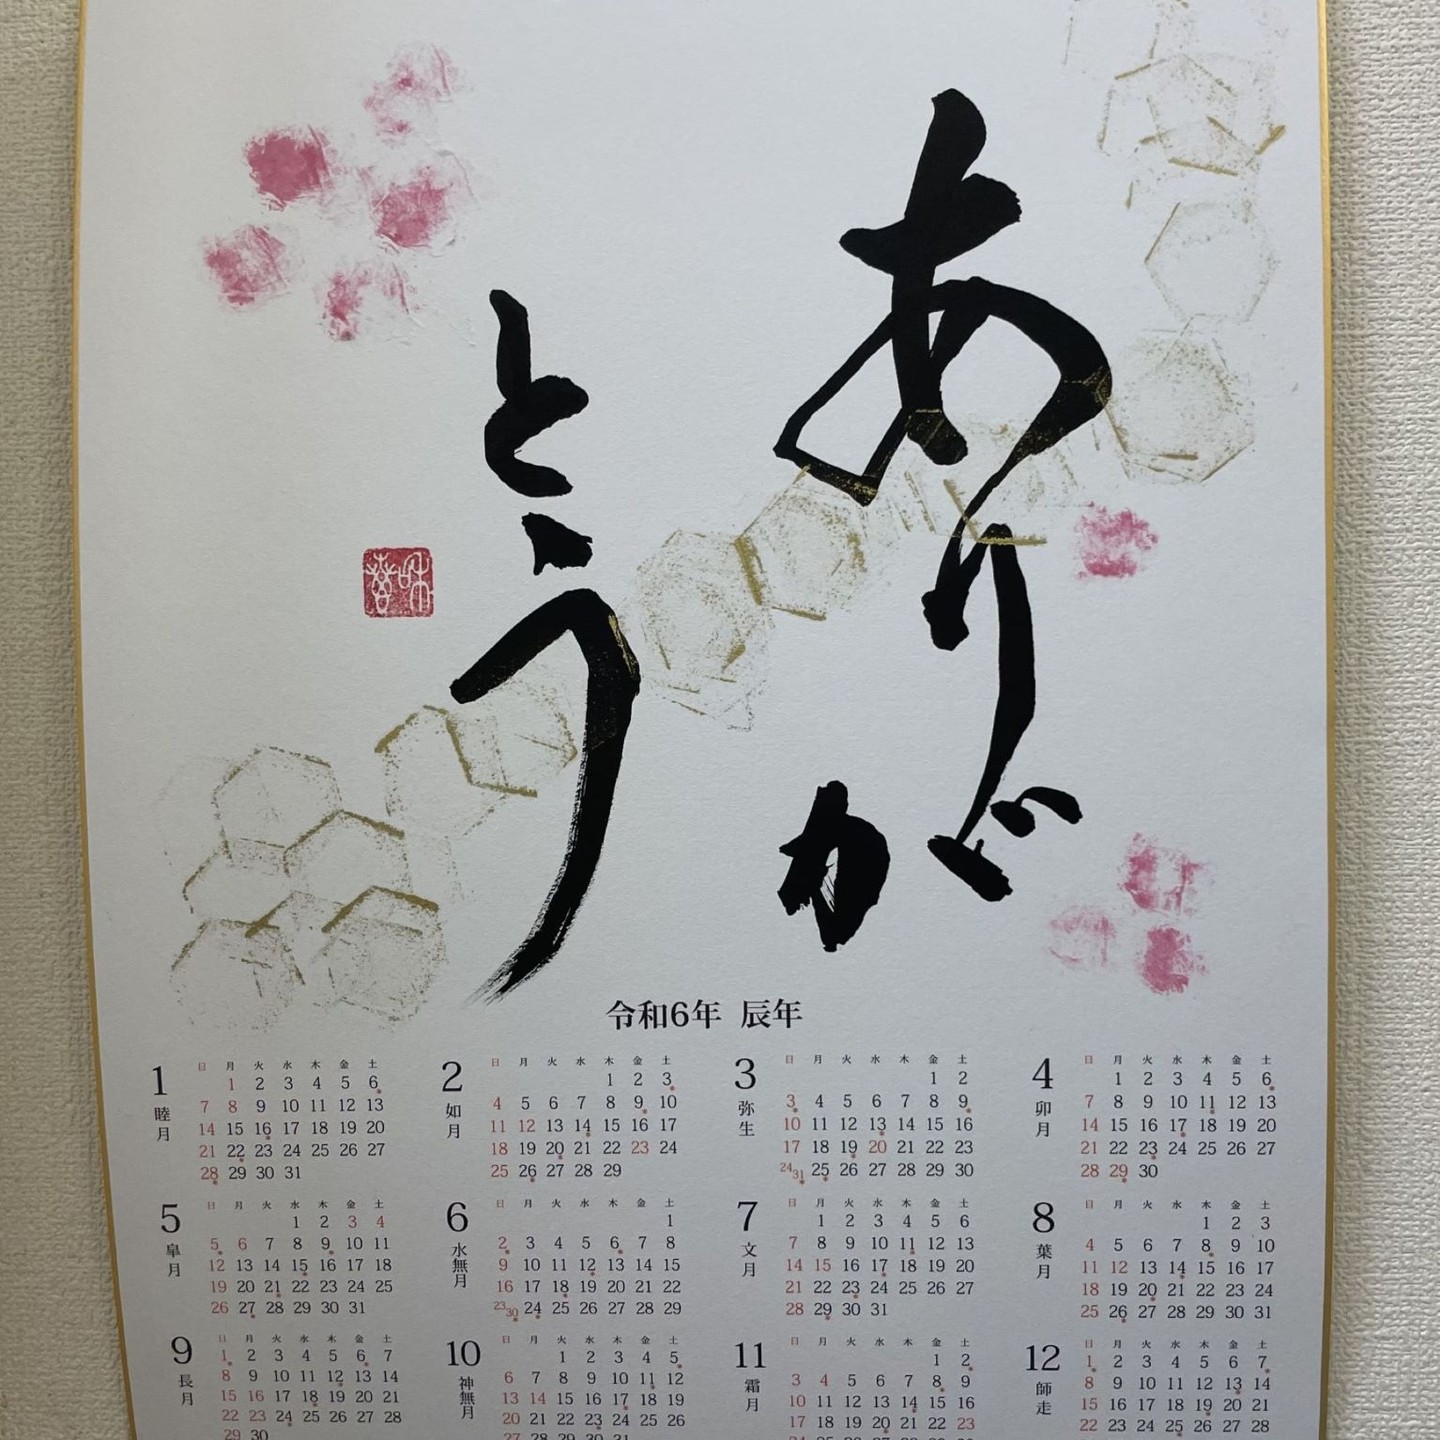 ありが
とう
令和6年 辰年
1 睦月
日 月 火 水 木 金 土
1 2 3 4 5 6
7 8 9 10 11 12 13
14 15 16 17 18 19 20
21 22 23 24 25 26 27
28 29 30 31
2 如月
日 月 火 水 木 金 土
1 2 3
4 5 6 7 8 9 10
11 12 13 14 15 16 17
18 19 20 21 22 23 24
25 26 27 28 29
3 弥生
日 月 火 水 木 金 土
1 2
3 4 5 6 7 8 9
10 11 12 13 14 15 16
17 18 19 20 21 22 23
24 31 25 26 27 28 29 30
4 卯月
日 月 火 水 木 金 土
1 2 3 4 5 6
7 8 9 10 11 12 13
14 15 16 17 18 19 20
21 22 23 24 25 26 27
28 29 30
5 皐月
日 月 火 水 木 金 土
1 2 3 4
5 6 7 8 9 10 11
12 13 14 15 16 17 18
19 20 21 22 23 24 25
26 27 28 29 30 31
6 水無月
日 月 火 水 木 金 土
1
2 3 4 5 6 7 8
9 10 11 12 13 14 15
16 17 18 19 20 21 22
23 30 24 25 26 27 28 29
7 文月
日 月 火 水 木 金 土
1 2 3 4 5 6
7 8 9 10 11 12 13
14 15 16 17 18 19 20
21 22 23 24 25 26 27
28 29 30 31
8 葉月
日 月 火 水 木 金 土
1 2 3
4 5 6 7 8 9 10
11 12 13 14 15 16 17
18 19 20 21 22 23 24
25 26 27 28 29 30 31
9 長月
日 月 火 水 木 金 土
1 2 3 4 5 6 7
8 9 10 11 12 13 14
15 16 17 18 19 20 21
22 23 24 25 26 27 28
29 30
10 神無月
日 月 火 水 木 金 土
1 2 3 4 5
6 7 8 9 10 11 12
13 14 15 16 17 18 19
20 21 22 23 24 25 26
27 28 29 30 31
11 霜月
日 月 火 水 木 金 土
1 2
3 4 5 6 7 8 9
10 11 12 13 14 15 16
17 18 19 20 21 22 23
12 師走
日 月 火 水 木 金 土
1 2 3 4 5 6 7
8 9 10 11 12 13 14
15 16 17 18 19 20 21
22 23 24 25 26 27 28